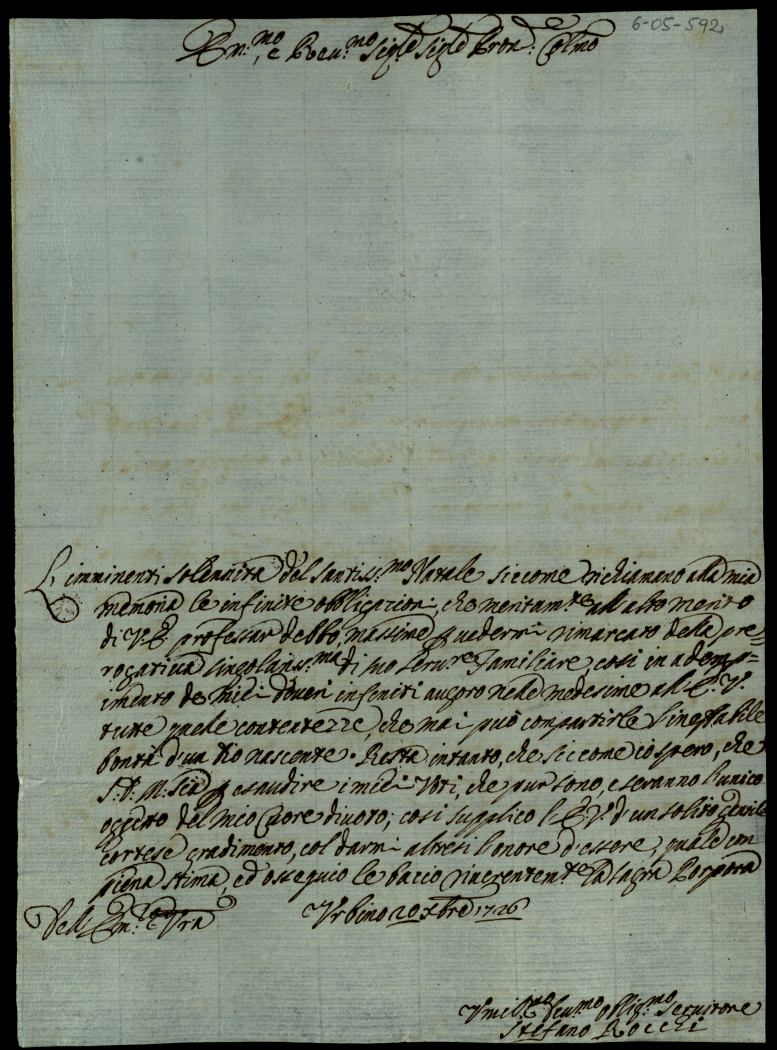 6-05-592
Em:mo, e Rev:mo Sig.re Sig.re Pron: Colmo
L'imminenti solennità del Santiss:mo Natale siccome richiamano alla mia
memoria le infinite obbligazioni, che meritam.te all'alto merito
di V.E. professar debbo, massime vedermi rimarcato della pre=
rogativa singolariss:ma di suo Serv.re Familiare, così in ademp=
imento de miei doveri infiniti auguro nelle medesime all'E.V.
tutte quelle contentezze, che mai può compartirle l'ineffabile
bontà d'un Dio nascente. Resta intanto, che siccome io spero, che
S.D.M. sia p esaudire i miei Voti, che pur sono, e seranno l'unico
oggetto del mio Cuore divoto, così supplico l'E.V. d'un solito gentile
cortese gradimento, col darmi altresì l'onore d'essere, quale con
piena stima, ed ossequio le baccio riverentem.te la Sagra Porpora
Dell'Em:za Vra Urbino 20 Xbre 1726
Umil.mo Dev.mo Oblig.mo Servitore
Stefano Rocchi